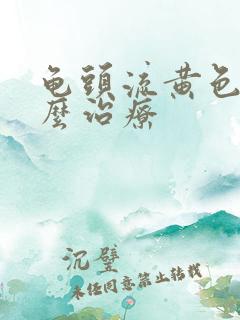 龟頭流黄色
麽治療
沉璧
未经同意禁止转载